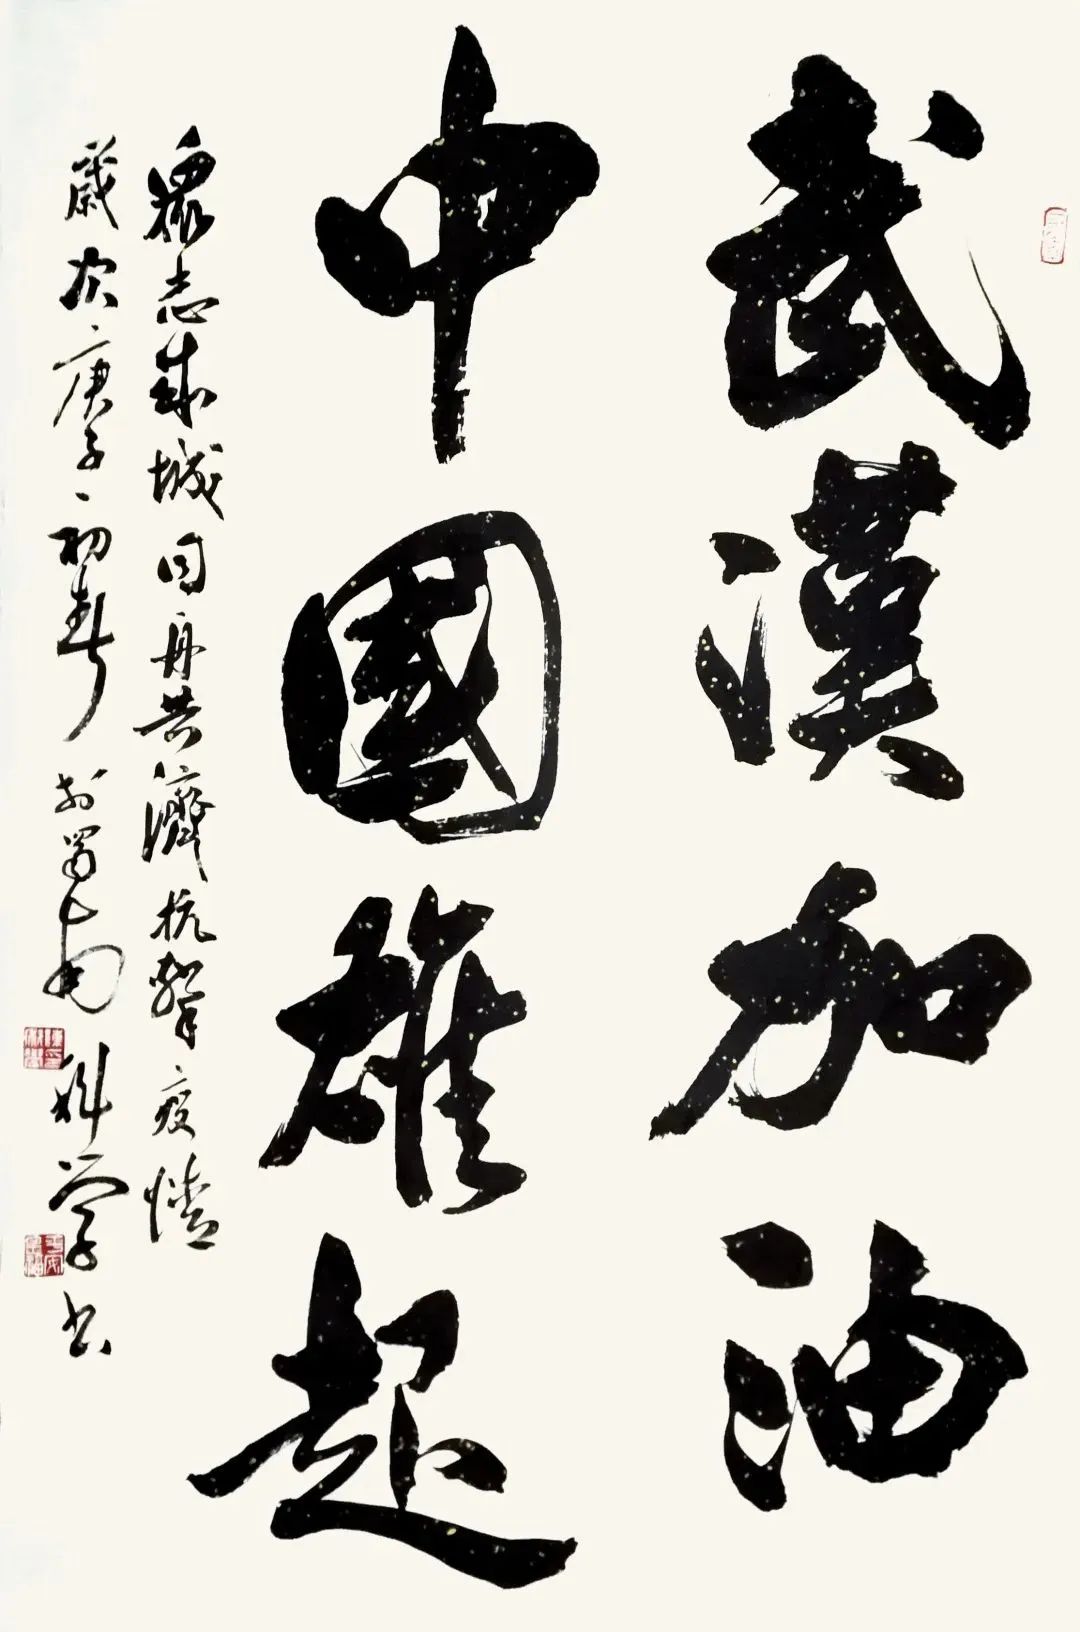 武漢加油
中國雄起
眾志成城同舟共濟抗擊疫情
歲次庚子初春於蜀南科学书